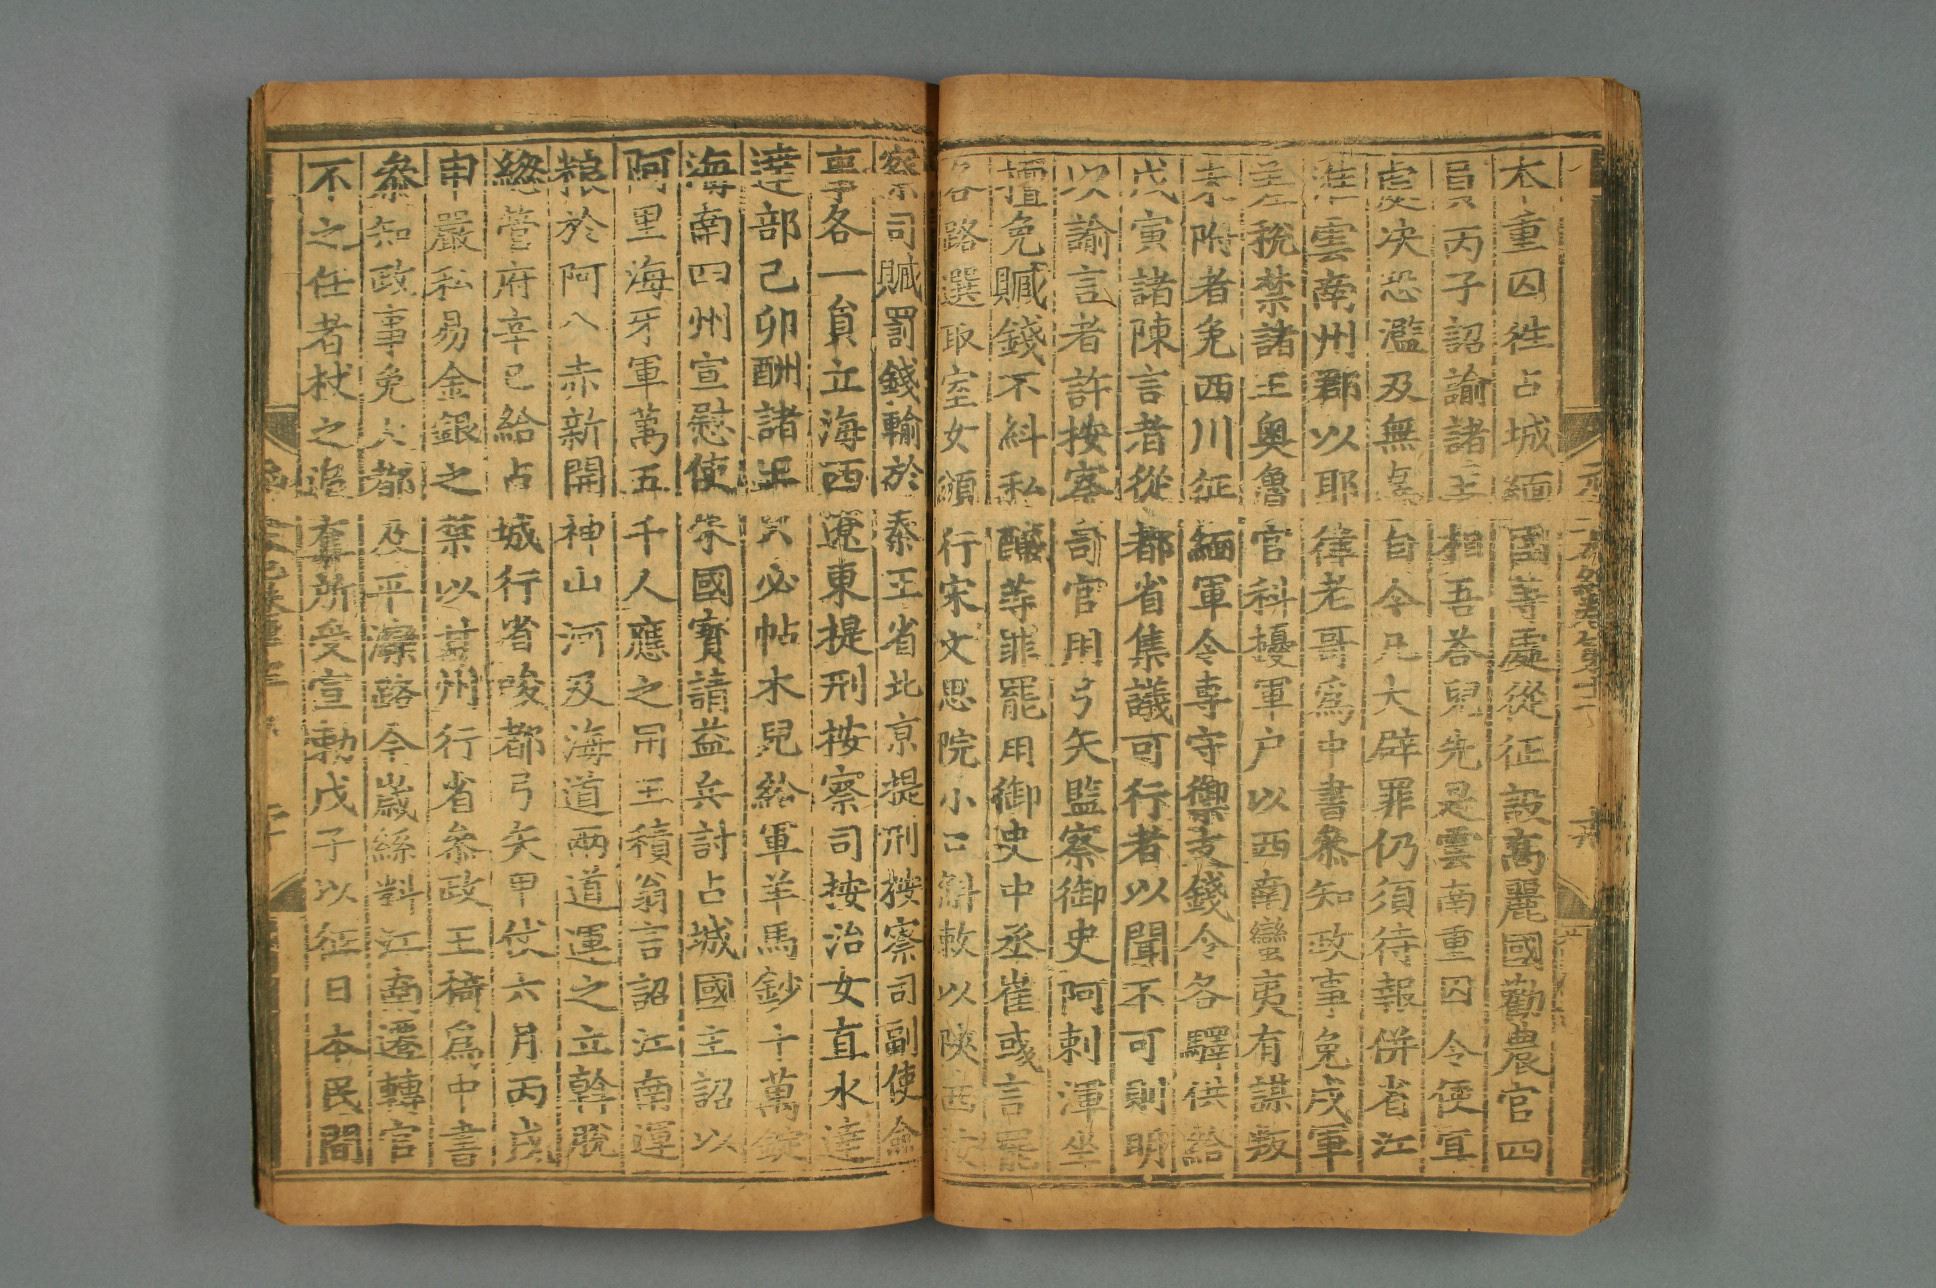 本重囚徃占城緬國等處從征設髙麗國勸農官四
員丙子詔諭諸王相吾荅兒先是雲南重囚令便宜
處决恐濫及無辜自今凡大辟罪仍須待報併省江
淮雲南州郡以耶律老哥爲中書叅知政事免戍軍
差稅禁諸王奥魯官科擾軍户以西南蠻夷有謀叛
未附者免西川征緬軍令専守禦支錢令各驛供給
戊寅諸陳言者從都省集議可行者以聞不可則明
以諭言者許按察司官用弓矢監察御史阿剌渾坐
擅免贓錢不糾私釀等罪罷用御史中丞崔彧言罷
各路選取室女頒行宋文思院小口斛敕以陜西按
察司贓罰錢輸於秦王省北京提刑按察司副使僉
事各一員立海西遼東提刑按察司按治女直水達
達部己卯酬諸王只必帖木兒給軍羊馬鈔十萬錠
海南四州宣慰使朱國寳請益兵討占城國主詔以
阿里海牙軍萬五千人應之用王積翁言詔江南運
糧於阿八赤新開神山河及海道兩道運之立斡脫
緫管府辛巳給占城行省唆都弓矢甲仗六月丙戌
申嚴私易金銀之禁以甘州行省叅政王椅爲中書
叅知政事免大都及平灤路今歲絲料江南遷轉官
不之任者杖之追奪所受宣勅戊子以征日本民間